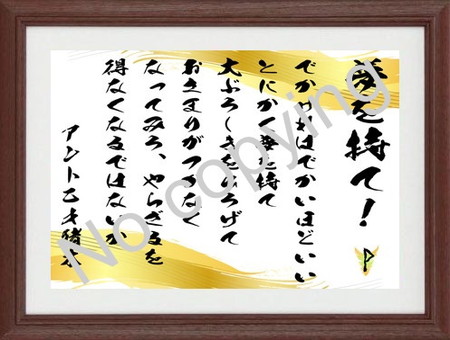 夢を持て！
でかければでかいほどいい
とにかく夢を持て
大ぶろしきをひろげて
おさまりがつかなく
なってみろ、やらざるを
得なくなるではないか
アントニオ猪木
No copying